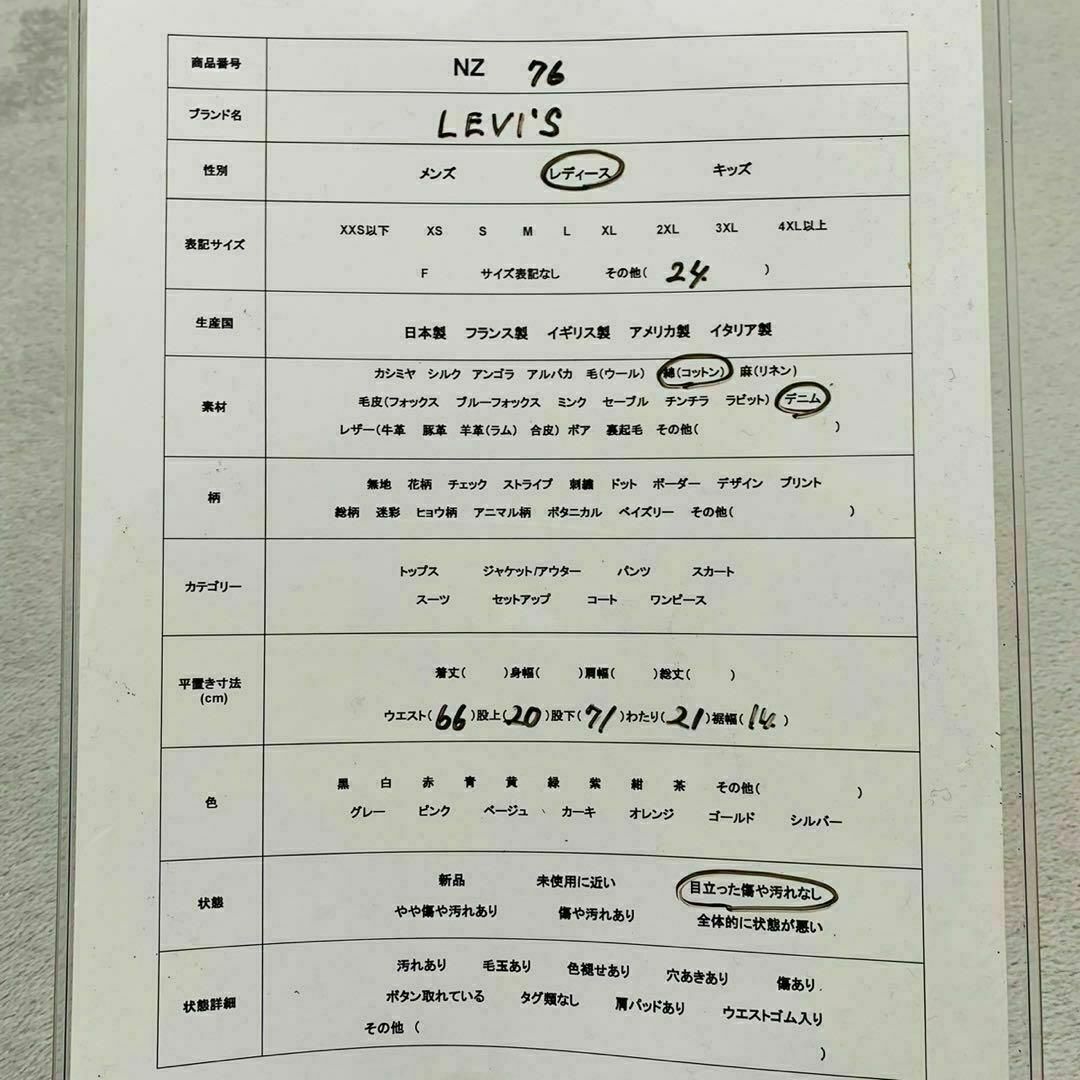 商品番号 NZ 76
ブランド名 LEVI'S
性別 メンズ レディース キッズ
表記サイズ XXS以下 XS S M L XL 2XL 3XL 4XL以上
F サイズ表記なし その他( 24. )
生産国 日本製 フランス製 イギリス製 アメリカ製 イタリア製
素材 カシミヤ シルク アンゴラ アルパカ 毛(ウール) 綿(コットン) 麻(リネン)
毛皮(フォックス ブルーフォックス ミンク セーブル チンチラ ラビット) デニム
レザー(牛革 豚革 羊革(ラム) 合皮) ボア 裏起毛 その他( )
柄 無地 花柄 チェック ストライプ 刺繍 ドット ボーダー デザイン プリント
総柄 迷彩 ヒョウ柄 アニマル柄 ボタニカル ペイズリー その他( )
カテゴリー トップス ジャケット/アウター パンツ スカート
スーツ セットアップ コート ワンピース
平置き寸法 (cm) 着丈( )身幅( )肩幅( )総丈( )
ウエスト(66)股上(20)股下(71)わたり(21)裾幅(14.)
色 黒 白 赤 青 黄 緑 紫 紺 茶 その他( )
グレー ピンク ベージュ カーキ オレンジ ゴールド シルバー
状態 新品 未使用に近い 目立った傷や汚れなし
やや傷や汚れあり 傷や汚れあり 全体的に状態が悪い
状態詳細 汚れあり 毛玉あり 色褪せあり 穴あきあり 傷あり
ボタン取れている タグ類なし 肩パッドあり ウエストゴム入り
その他 ( )